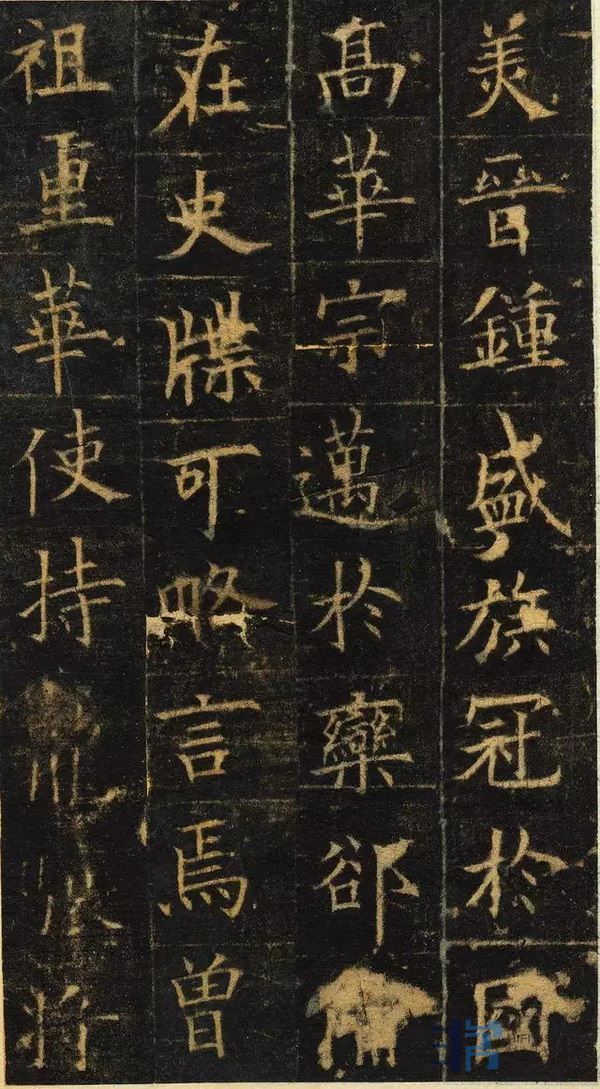 美晉鍾盛族冠於國
高華宗邁於欒郤
在史牒可略言焉曾
祖重華使持將